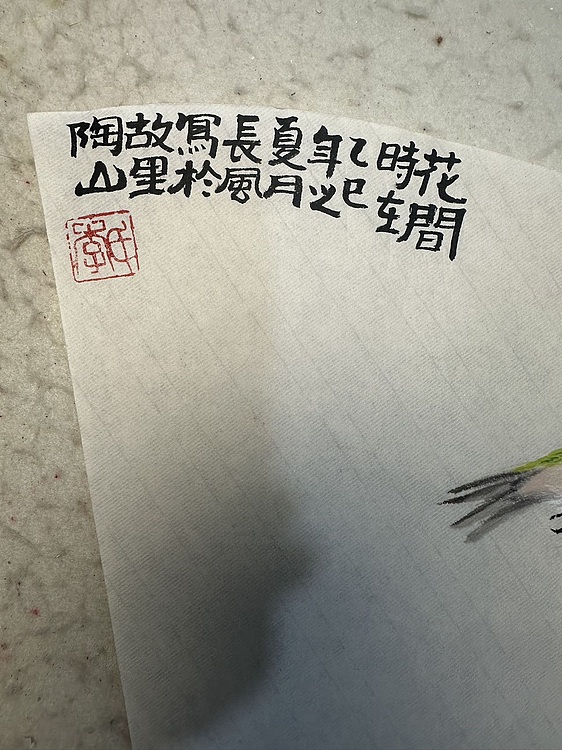 花間
時在
乙巳
年之
夏月
長風
寫於
故里
陶山